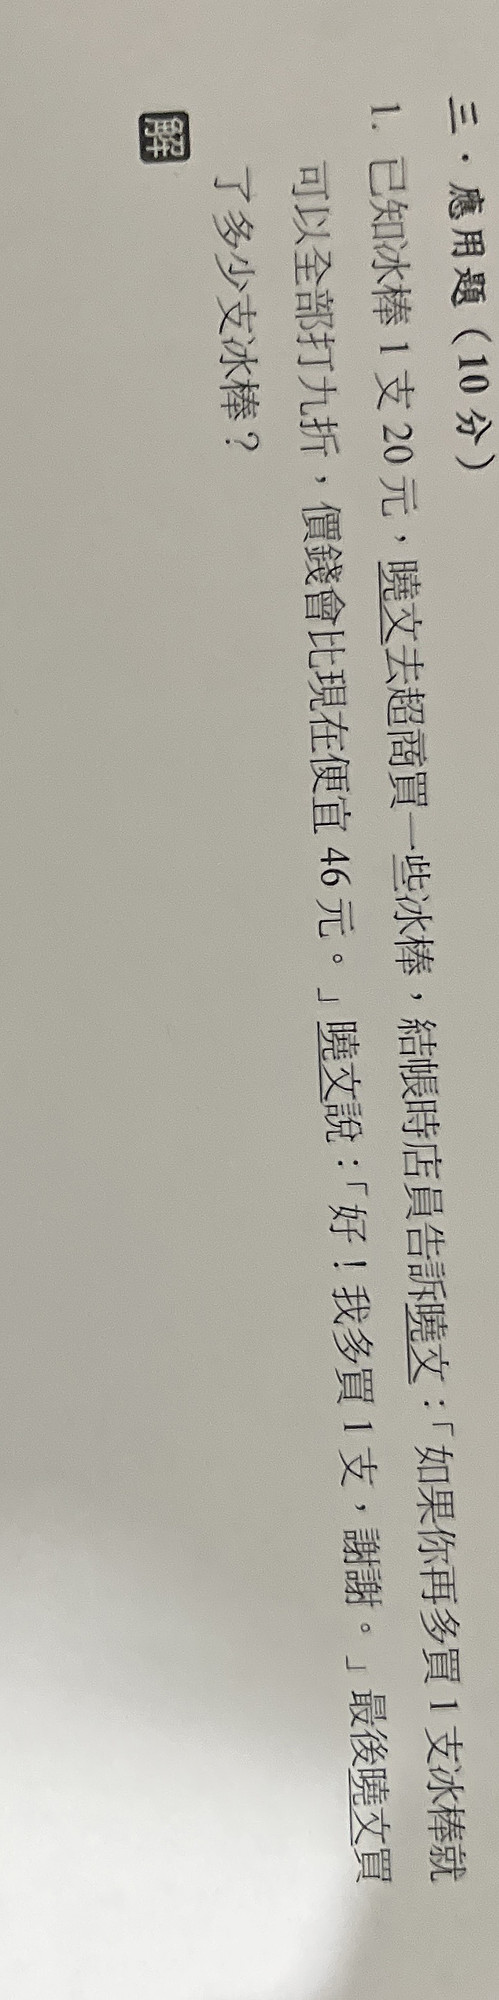 三．應用題（10 分）
1. 已知冰棒 1 支 20 元，曉文去超商買一些冰棒，結帳時店員告訴曉文：「如果你再多買 1 支冰棒就
可以全部打九折，價錢會比現在便宜 46 元。」曉文說：「好！我多買 1 支，謝謝。」最後曉文買
了多少支冰棒？
解